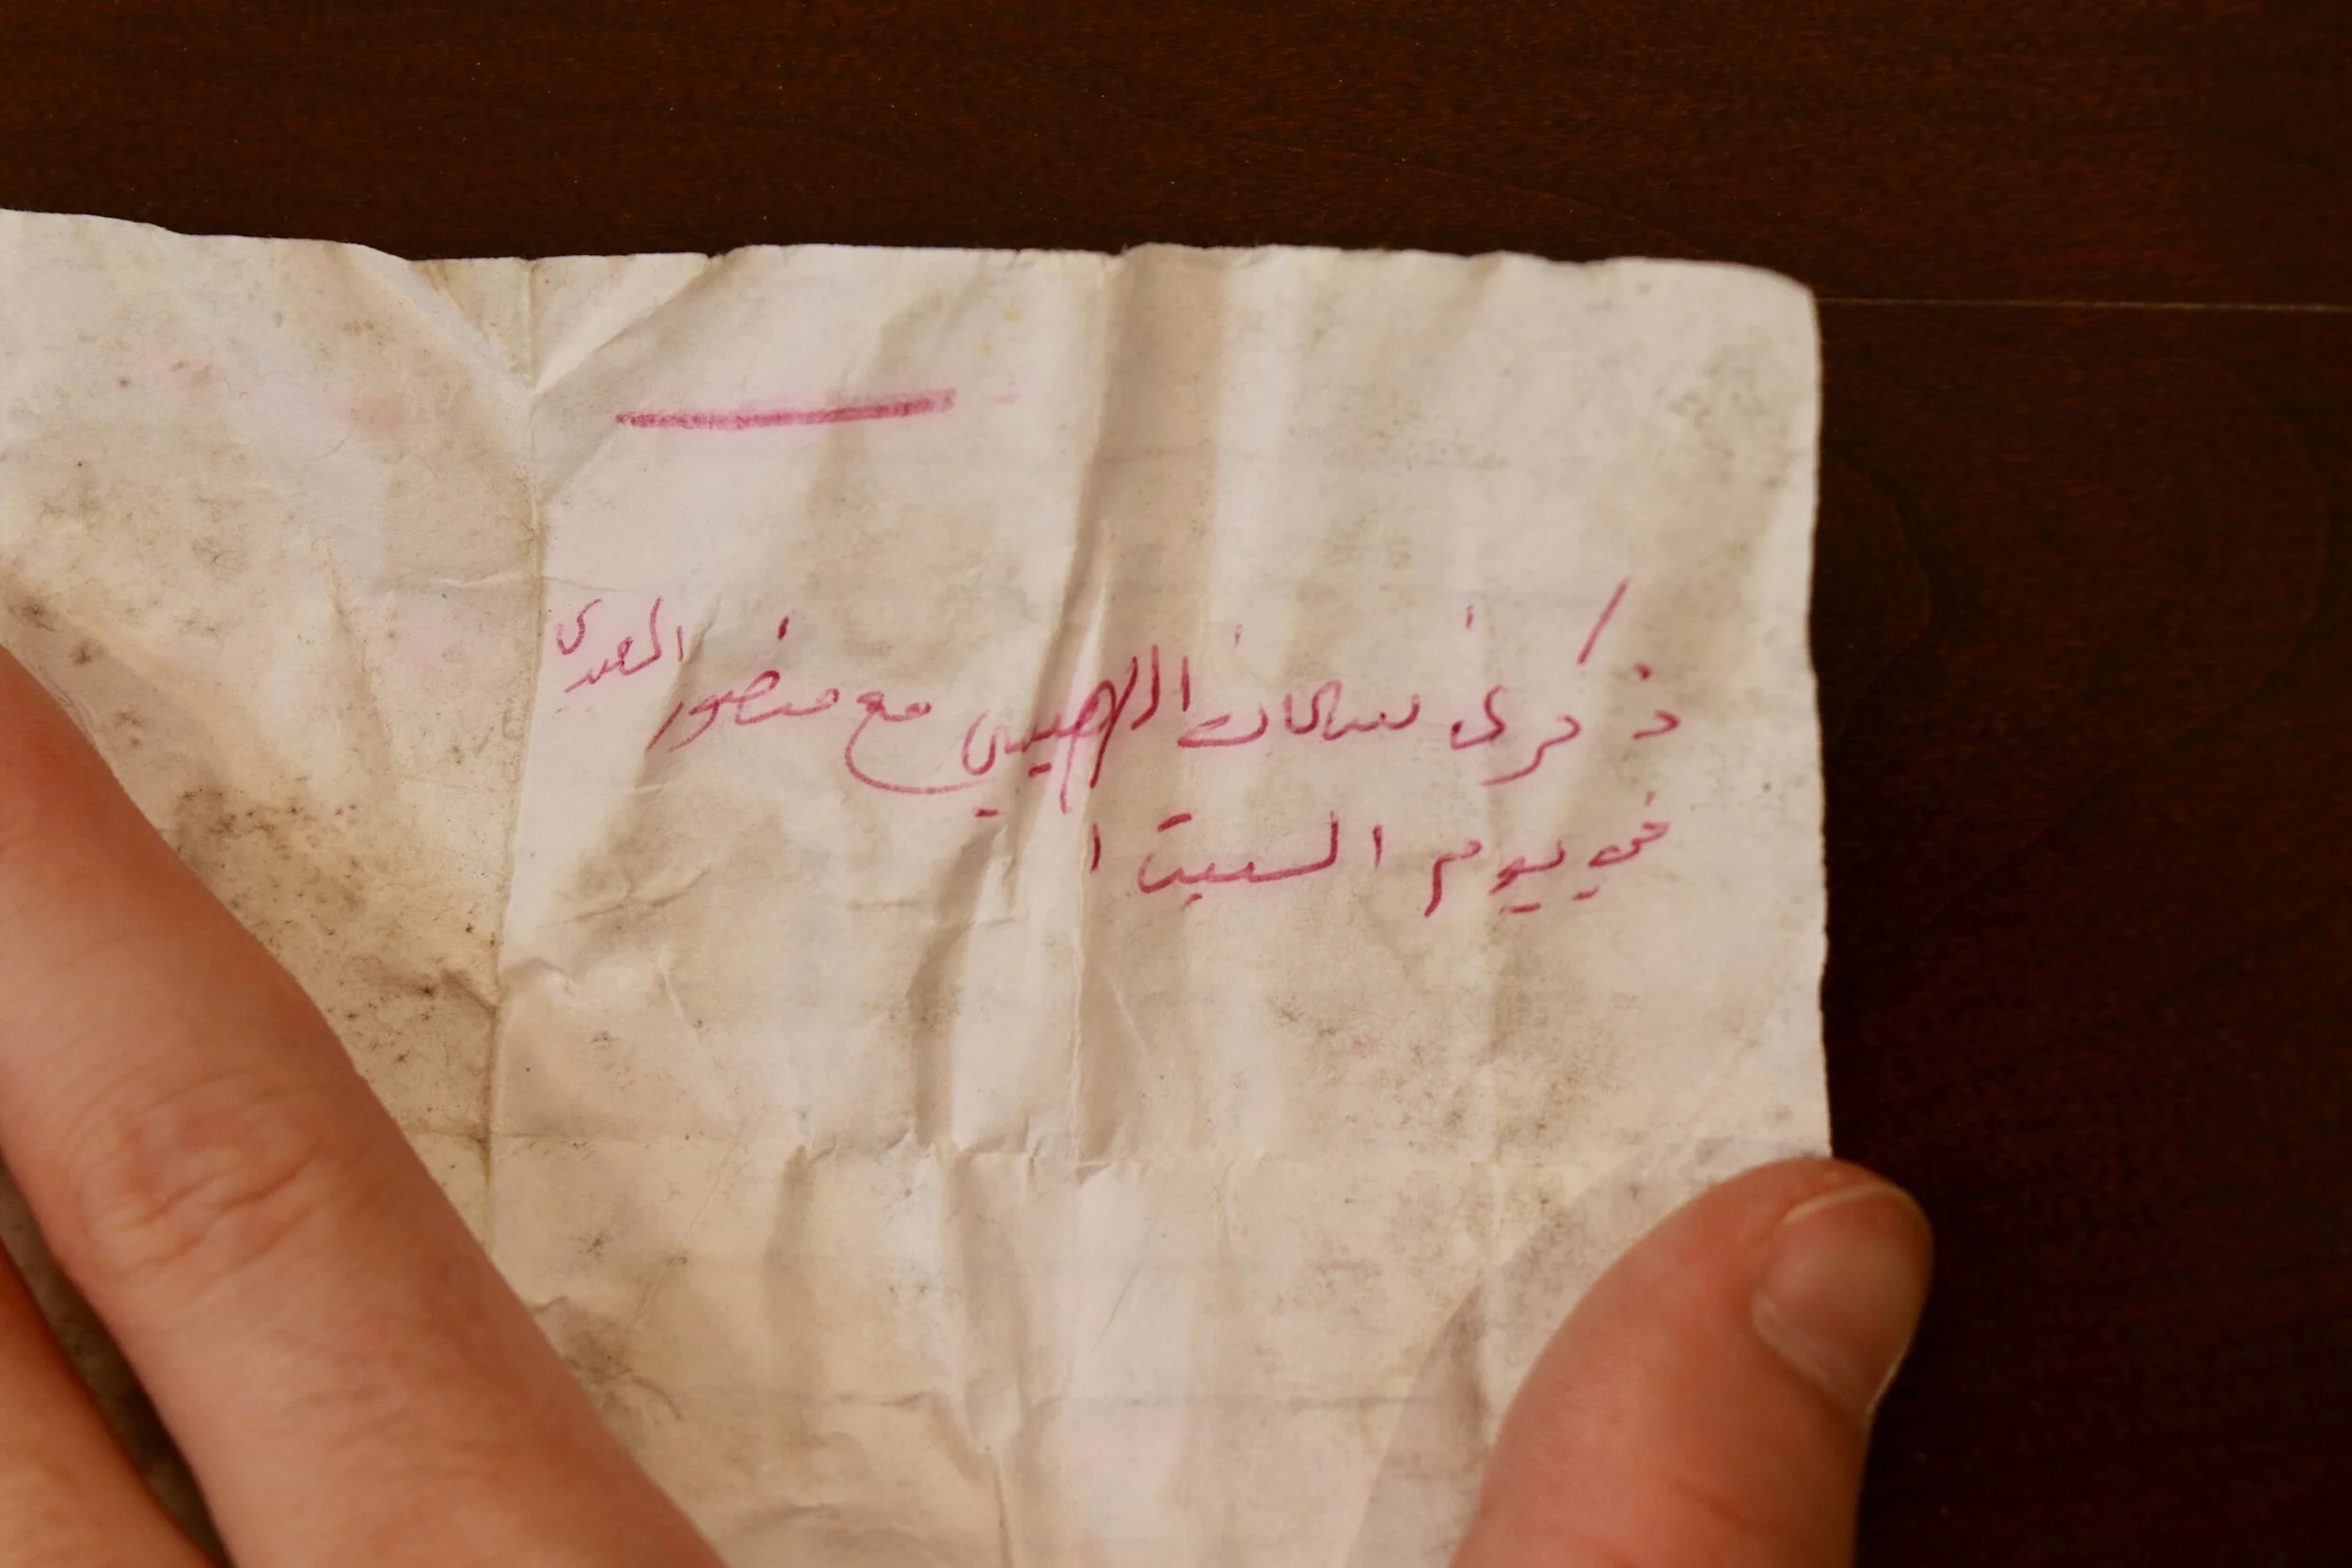 ذكرى سلطان اللهيبي مع منصور العبدي
في يوم السبت ا